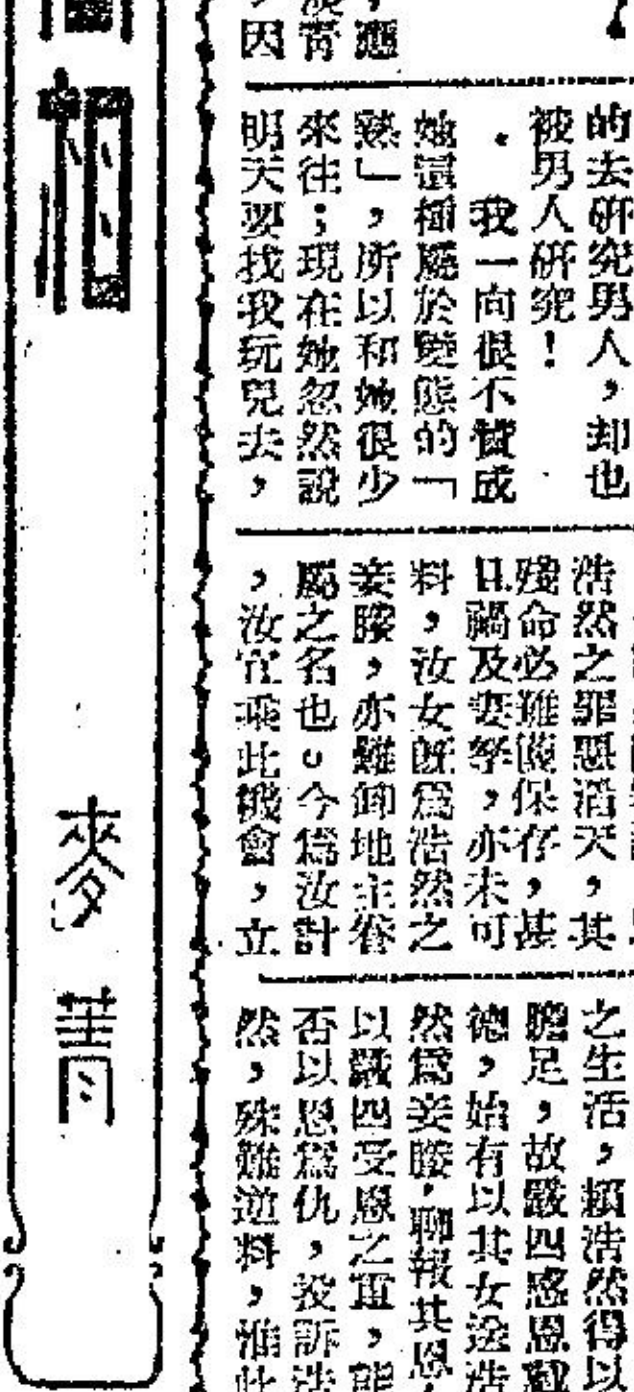 的去研究男人，却也
被男人研究！
．我一向很不贊成
她這種屬於變態的「
熱」，所以和她很少
來往；現在她忽然說
明天要找我玩兒去，
浩然之罪惡滔天，其
殘命必難護保存，甚
且禍及妻孥，亦未可
料，汝女既爲浩然之
妾媵，亦難卸地主眷
屬之名也。今爲汝計
，汝宜乘此機會，立
之生活，賴浩然得以
贍足，故嚴四感恩戴
德，始有以其女送浩
然爲妾媵，聊報其恩，
以嚴四受恩之重，能
否以恩爲仇，投訴浩
然，殊難逆料，惟此
，應
青
因
相
麥青